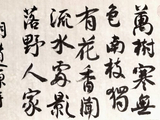 萬樹寒無
色南枝獨
有花香聞
流水處影
落野人家